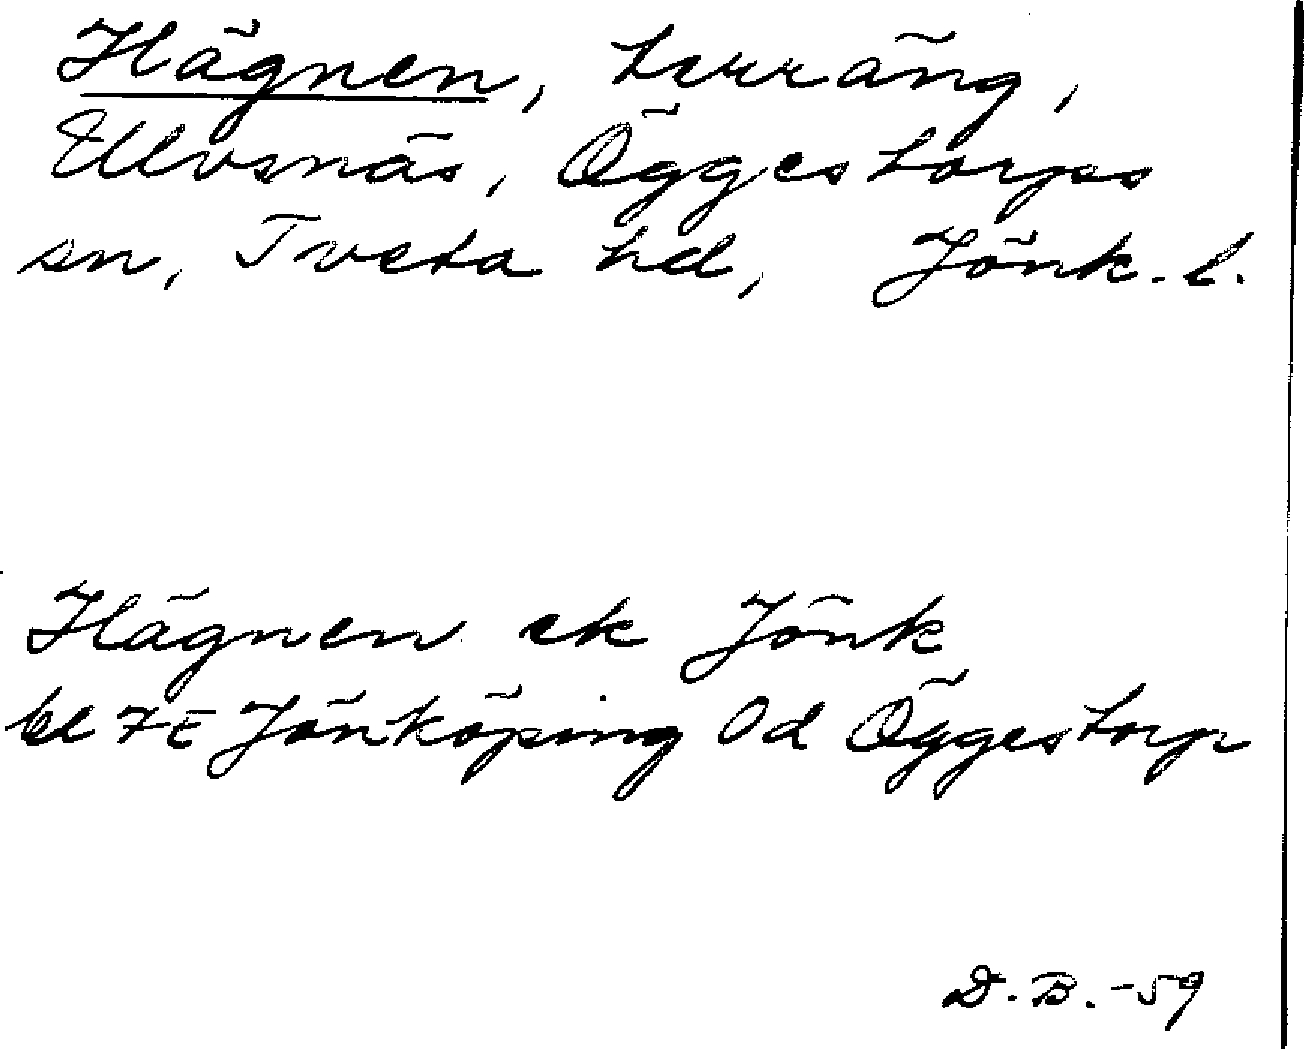 Hägnen, terräng,
Ulvsnäs, Öggestorps
sn, Tveta hd, Jönk. l.
Hägnen ek Jönk
bl 7E Jönköping Od Öggestorp
D. B. -59